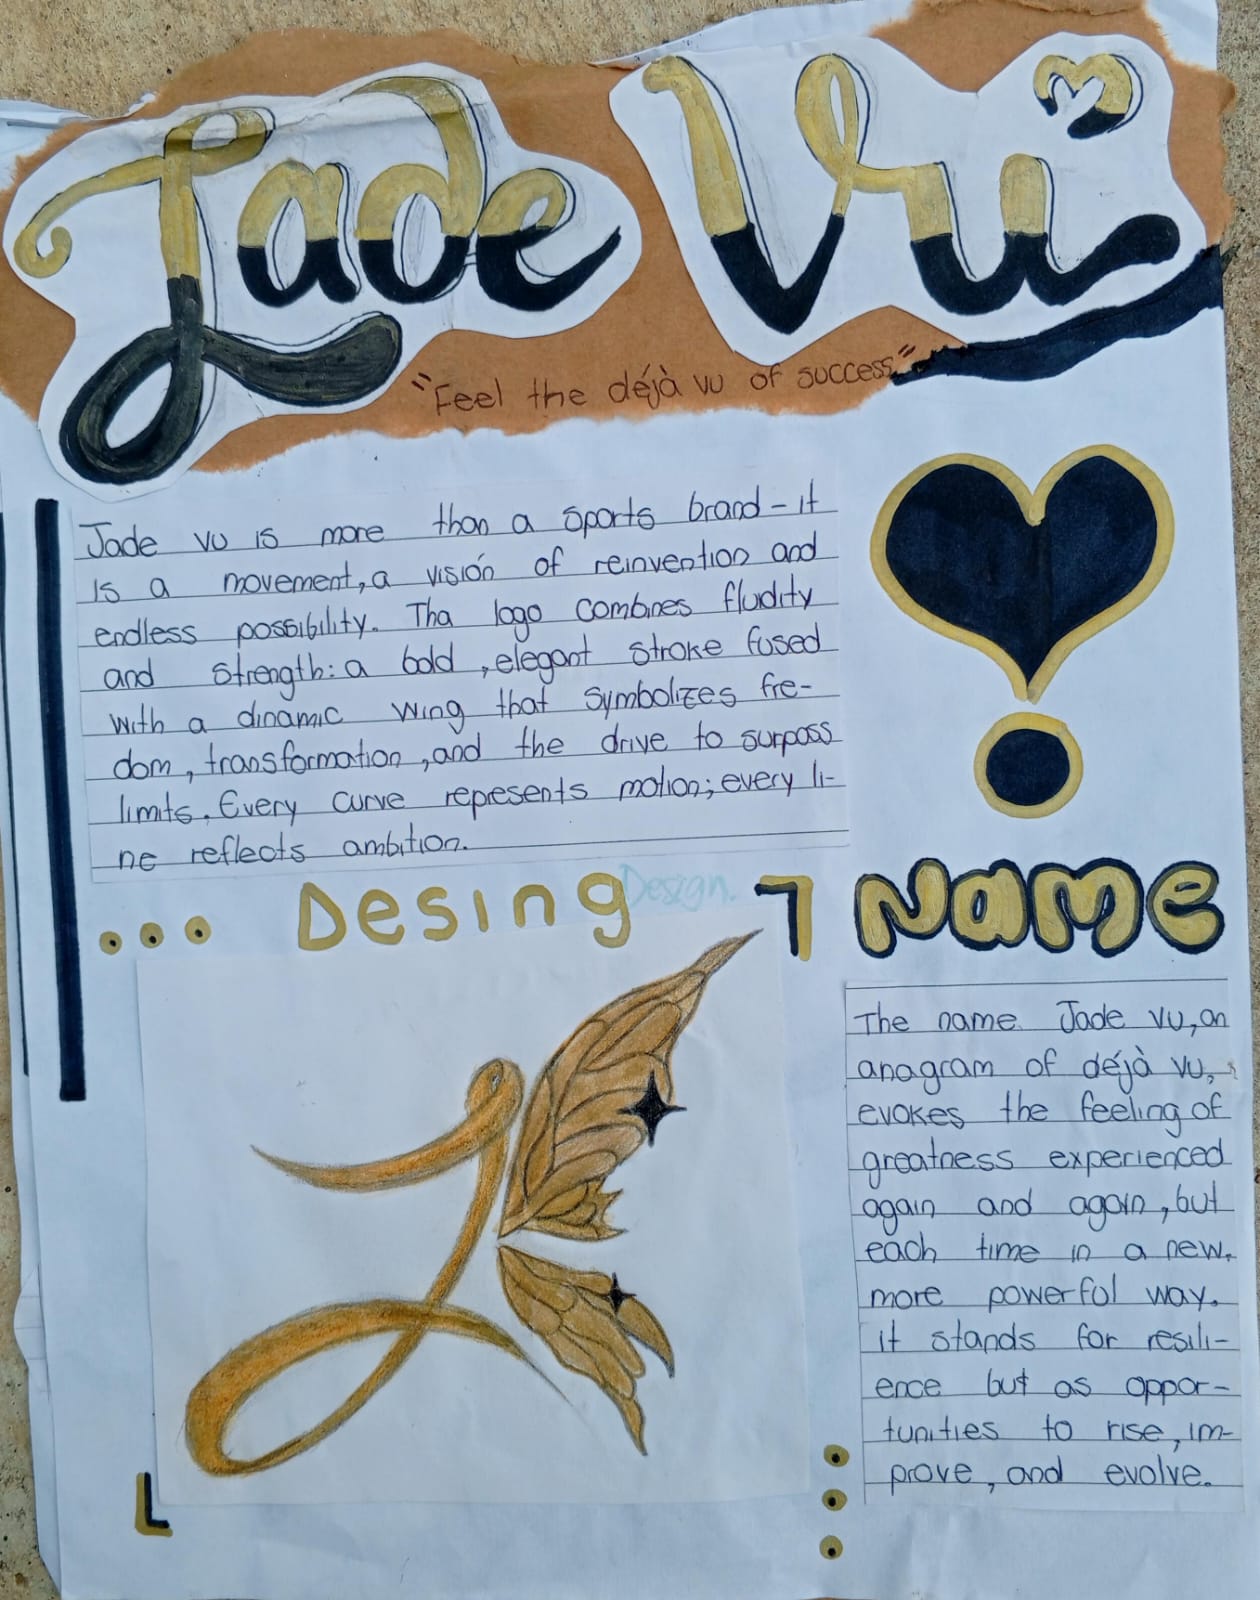 Jade Vu
"Feel the déjà vu of success"
Jade vu is more than a sports brand - it
is a movement, a visión of reinvention and
endless possibility. Tha logo combines fluidity
and strength: a bold, elegant stroke fused
with a dinamic wing that symbolizes fre-
dom, transformation, and the drive to surpass
limits. Every curve represents motion; every li-
ne reflects ambition.
Desing Design.
Name
The name Jade vu, an
anagram of déjà vu,
evokes the feeling of
greatness experienced
again and again, but
each time in a new.
more powerful way.
it stands for resili-
ence but as oppor-
tunities to rise, im-
prove, and evolve.